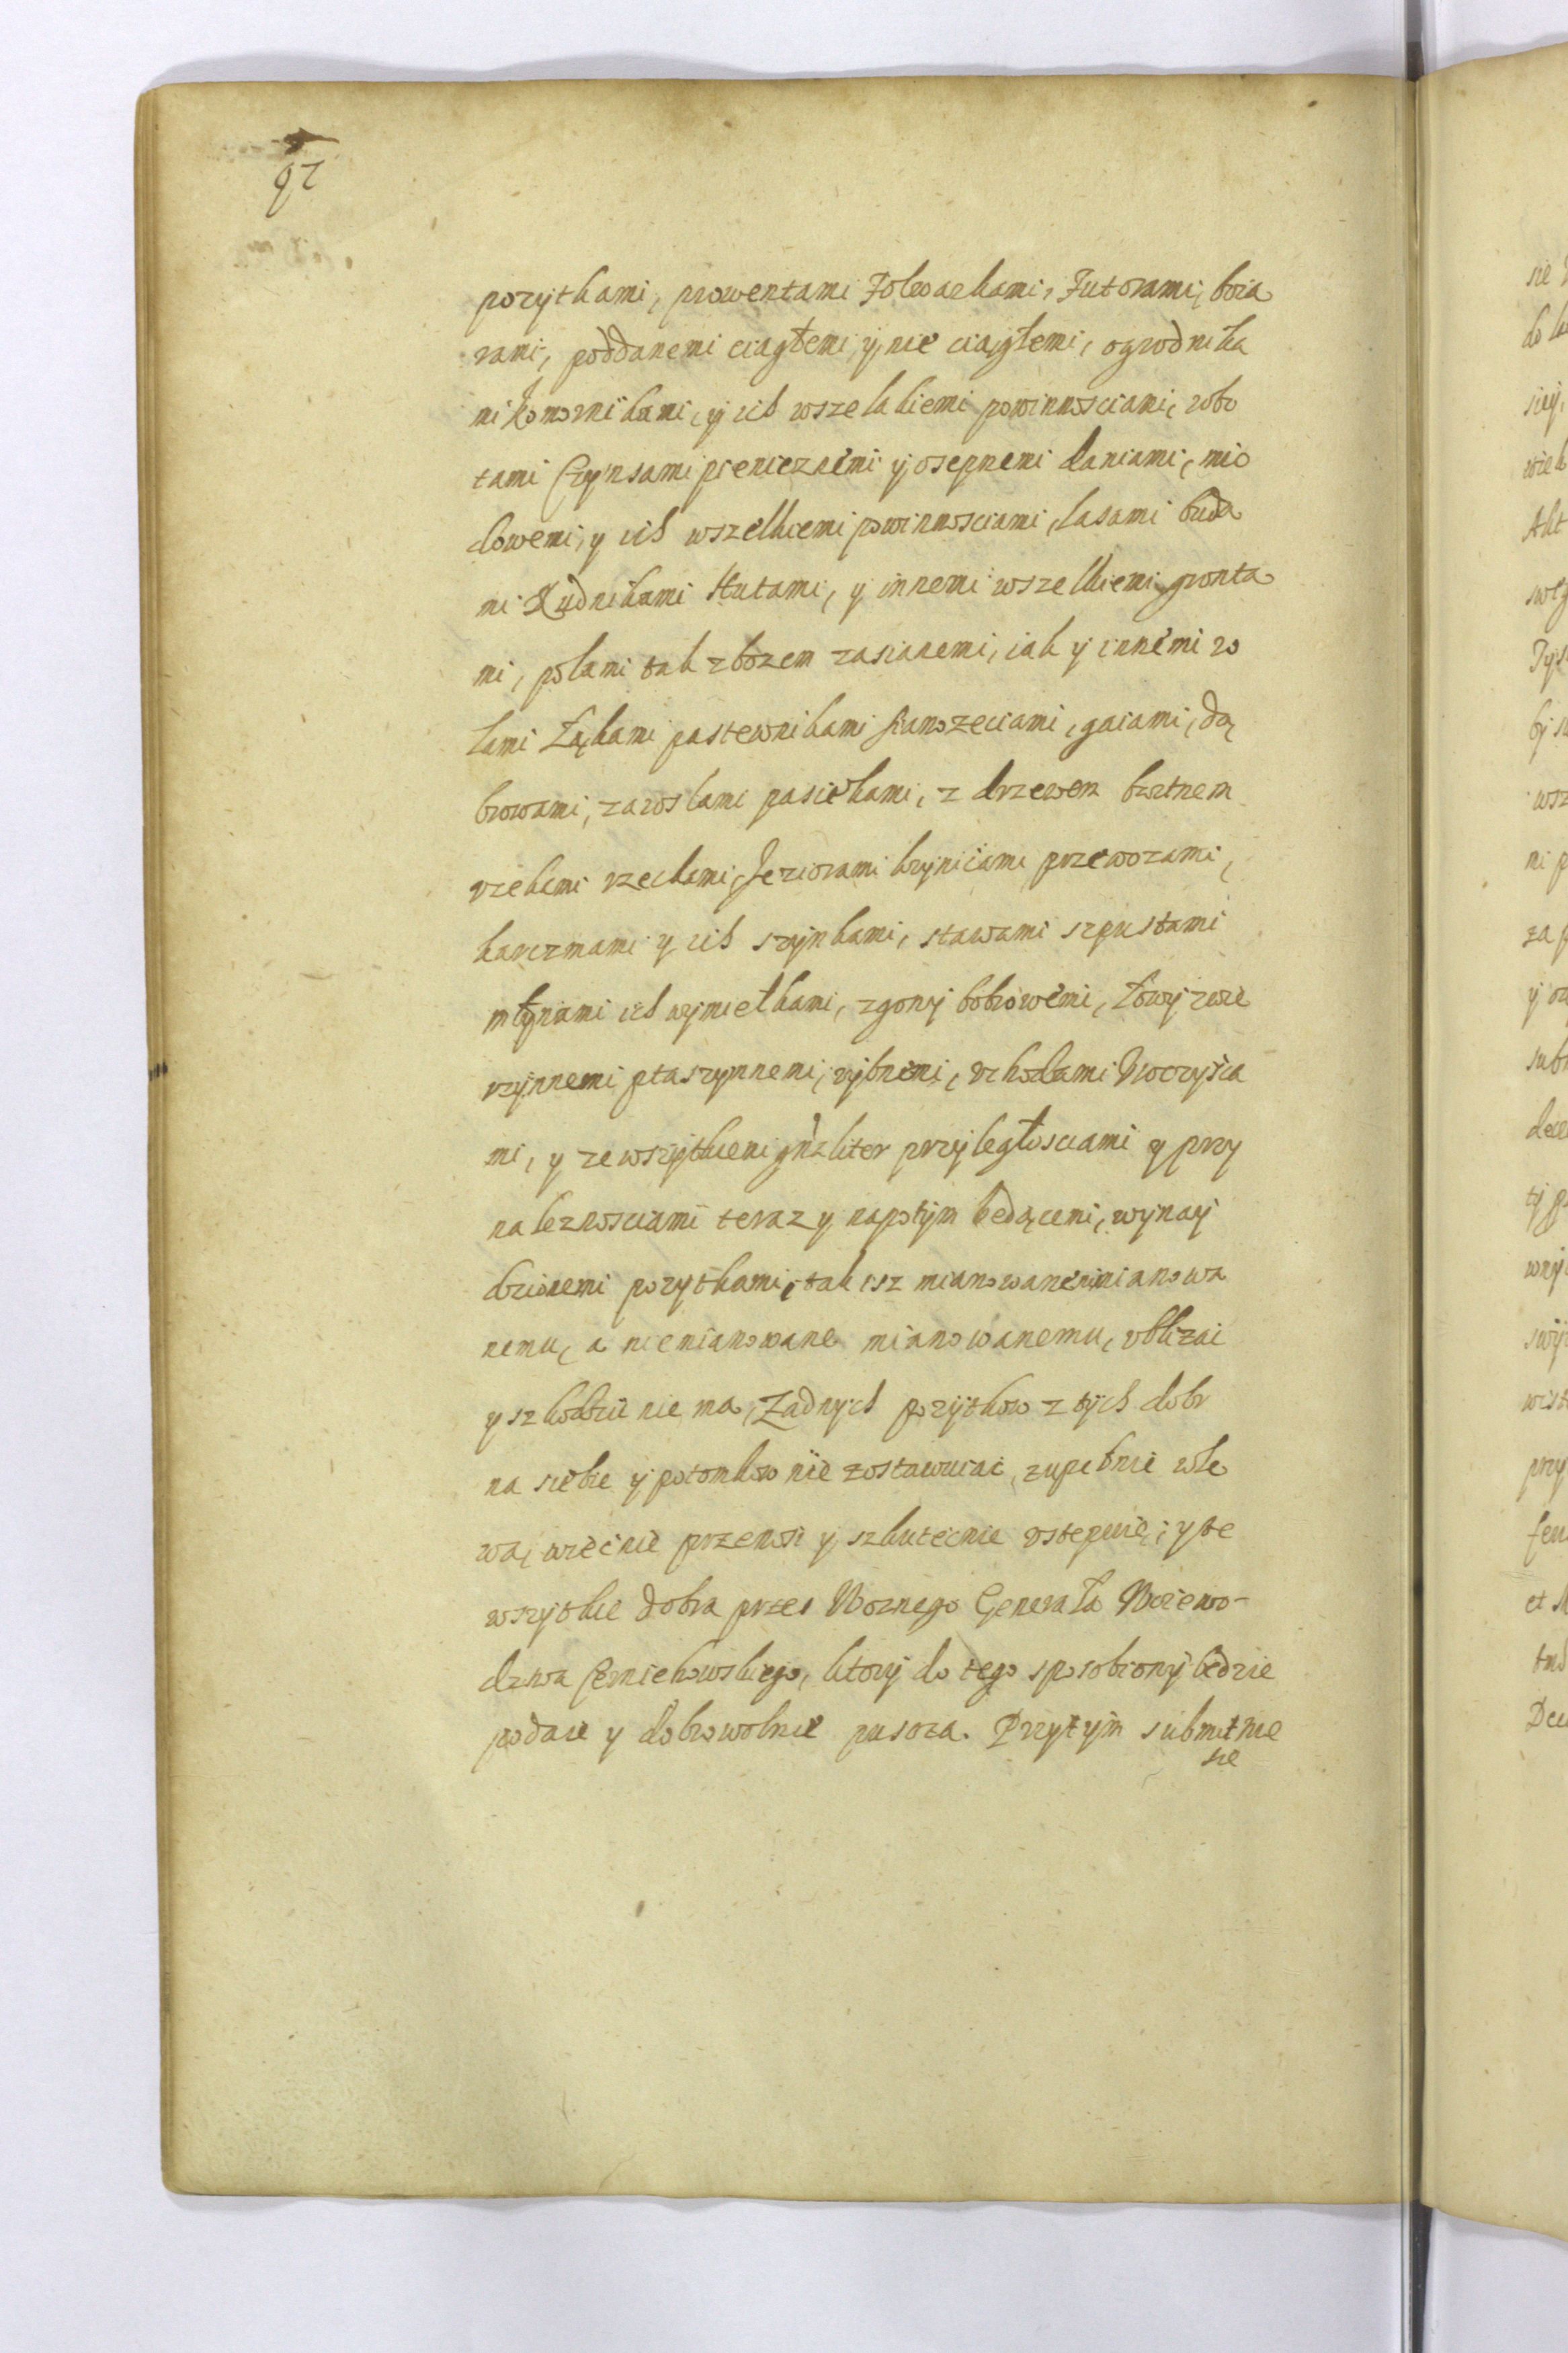 92
pozytkami, prowentami Folwarkami, Futorami, boia
rami, poddanemi ciągłemi, y nie ciągłemi, ogrodnika
mi Komornikami, y ich wszelakiemi powinnosciami, robo
tami Czynsami pienieznemi y osepnemi daniami, mio
dowemi, y ich wszelkiemi powinnosciami, lasami buda
mi Rudnikami Hutami, y innemi wszelkiemi gronta
mi, polami tak zbozem zasianemi, iak y innemi ro
lami Łąkami pastewnikami sianozeciami, gaiami, dą
browami, zaroslami pasiekami, z drzewem bartnem
rzekami rzeczkami, Jeziorami krynicami przewozami,
karczmami y ich szynkami, stawami szpustami
młynami ich wymiełkami, zgony bobrowemi, Łowy zwie
rzynnemi ptaszynnemi, rybnemi, vchodami Vroczysca
mi, y ze wszytkiemi przyległosciami y przy
naleznosciami teraz y napotym będącemi, wynay
dzionemi pozytkami, tak isz mianowane niemianowa
nemu, a niemianowane mianowanemu, vblizac
y szkodzic nie ma, Zadnych pozytkow z tych dobr
na siebie y potomkow nie zostawuiac, zupełnie zle
wa, wiecnie przenosi y szkutecnie vstępuie, y te
wszytkie dobra przez Woznego Generała Woiewo-
dzwa Cerniehowskiego, ktory do tego sposobiony będzie
podaie y dobrowolnie pusoza. Przytym submitnie
sie